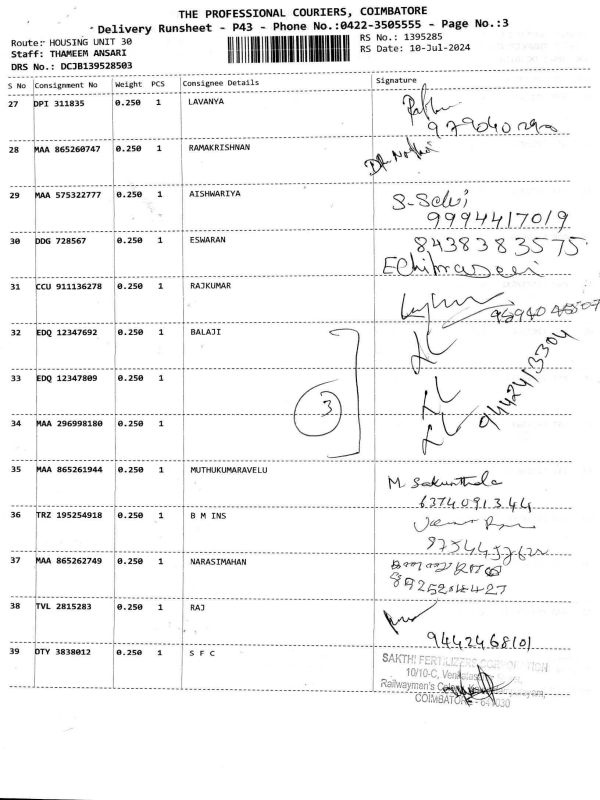 THE PROFESSIONAL COURIERS, COIMBATORE
Delivery Runsheet - P43 - Phone No.:0422-3505555 - Page No.:3
Route: HOUSING UNIT 30 RS No.: 1395285
Staff: THAMEEM ANSARI RS Date: 10-Jul-2024
DRS No.: DCJB139528503
S No Consignment No Weight PCS Consignee Details Signature
27 DPI 311835 0.250 1 LAVANYA
28 MAA 865260747 0.250 1 RAMAKRISHNAN
29 MAA 575322777 0.250 1 AISHWARIYA S-Selvi
9994417019
30 DDG 728567 0.250 1 ESWARAN 8438383575
31 CCU 911136278 0.250 1 RAJKUMAR
32 EDQ 12347692 0.250 1 BALAJI
33 EDQ 12347809 0.250 1
3
9442413304
34 MAA 296998180 0.250 1
35 MAA 865261944 0.250 1 MUTHUKUMARAVELU M. Sakunthala
6374091344
36 TRZ 195254918 0.250 1 B M INS
37 MAA 865262749 0.250 1 NARASIMAHAN
38 TVL 2815283 0.250 1 RAJ
9442468101
39 OTY 3838012 0.250 1 S F C
SAKTHI FERTILIZERS CORPORATION
10/10-C,
Railwayman's
COIMBATORE - 641030